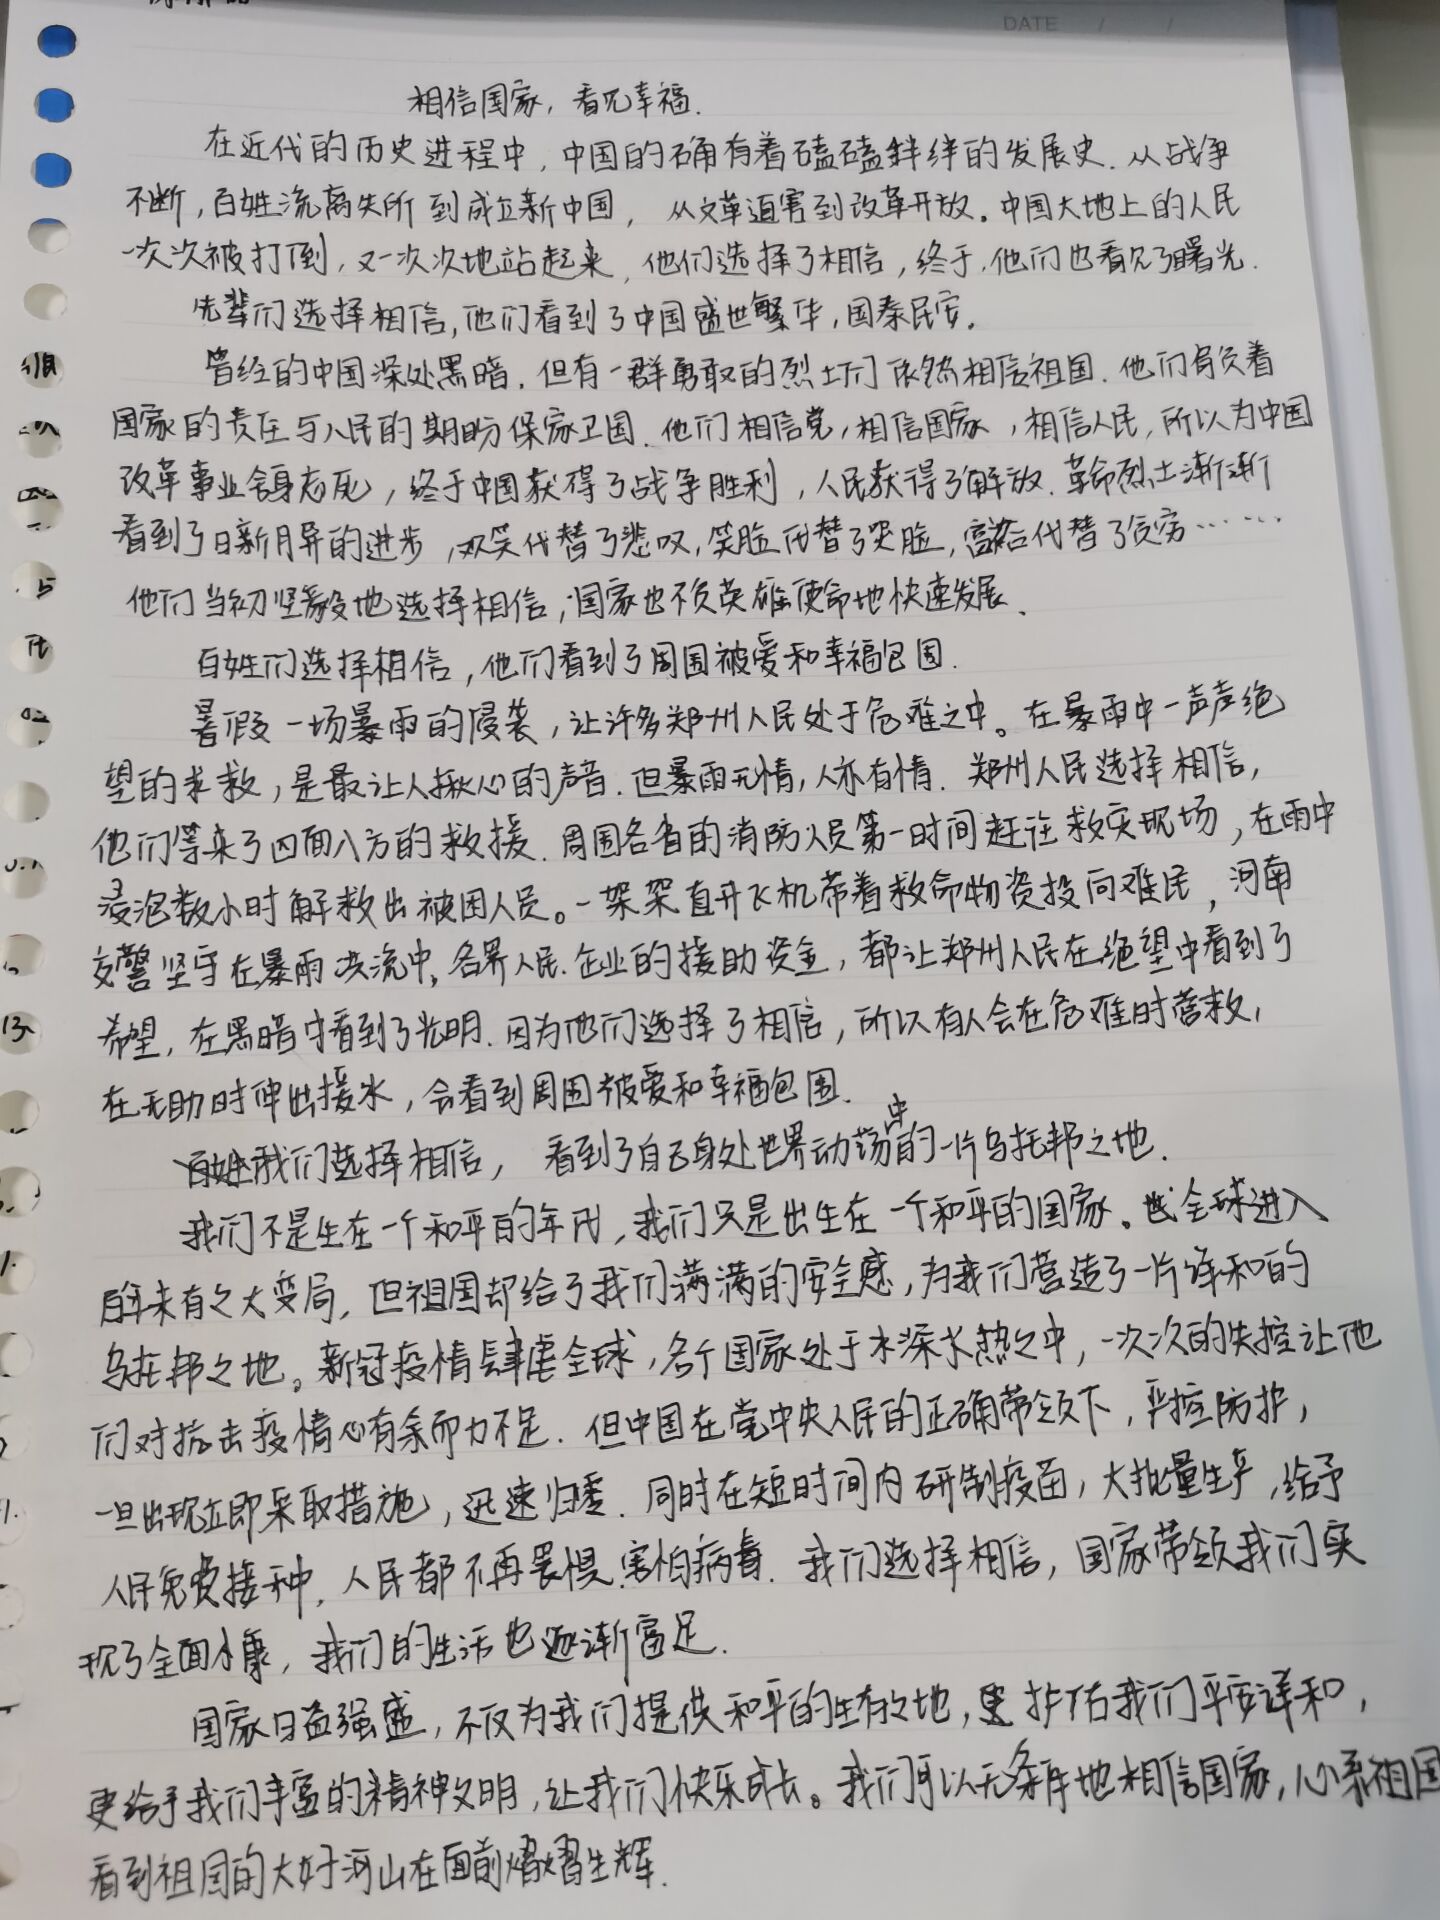 DATE / /
相信国家，看见幸福.
在近代的历史进程中，中国的确有着磕磕绊绊的发展史.从战争
不断，百姓流离失所到成立新中国，从文革迫害到改革开放。中国大地上的人民
一次次被打倒，又一次次地站起来，他们选择了相信，终于，他们也看见了曙光.
先辈们选择相信，他们看到了中国盛世繁华，国泰民安。
曾经的中国深处黑暗.但有一群勇敢的烈士们依然相信祖国.他们肩负着
国家的责任与人民的期盼保家卫国.他们相信党，相信国家，相信人民，所以为中国
改革事业舍身忘死，终于中国获得了战争胜利，人民获得了解放.革命烈士渐渐
看到了日新月异的进步，欢笑代替了悲叹，笑脸代替了哭脸，富裕代替了贫穷……
他们当初坚毅地选择相信，国家也不负英雄使命地快速发展.
百姓们选择相信，他们看到了周围被爱和幸福包围.
暑假一场暴雨的侵袭，让许多郑州人民处于危难之中。在暴雨中一声声绝
望的求救，是最让人揪心的声音.但暴雨无情，人亦有情.郑州人民选择相信，
他们等来了四面八方的救援.周围各省的消防人员第一时间赶往救灾现场，在雨中
浸泡数小时解救出被困人员。一架架直升飞机带着救命物资投向难民，河南
交警坚守在暴雨洪流中，各界人民、企业的援助资金，都让郑州人民在绝望中看到了
希望，在黑暗中看到了光明.因为他们选择了相信，所以有人会在危难时营救，
在无助时伸出援水，会看到周围被爱和幸福包围.
我们选择相信，看到了自己身处世界动荡中的一片乌托邦之地.
我们不是生在一个和平的年代，我们只是出生在一个和平的国家。全球进入
百年未有之大变局，但祖国却给了我们满满的安全感，为我们营造了一片祥和的
乌托邦之地。新冠疫情肆虐全球，各个国家处于水深火热之中，一次次的失控让他
们对抗击疫情心有余而力不足.但中国在党中央人民的正确带领下，严控防护，
一旦出现立即采取措施，迅速归零.同时在短时间内研制疫苗，大批量生产，给予
人民免费接种，人民都不再畏惧、害怕病毒.我们选择相信，国家带领我们实
现了全面小康，我们的生活也逐渐富足.
国家日益强盛，不仅为我们提供和平的生存之地，更护佑我们平安详和，
更给予我们丰富的精神文明，让我们快乐成长。我们可以无条件地相信国家，心系祖国
看到祖国的大好河山在面前熠熠生辉.